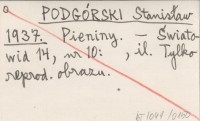 PODGÓRSKI Stanisław
1937. Pieniny. – Świato-
wid 14, nr 10: , il. Tylko
reprod. obrazu.